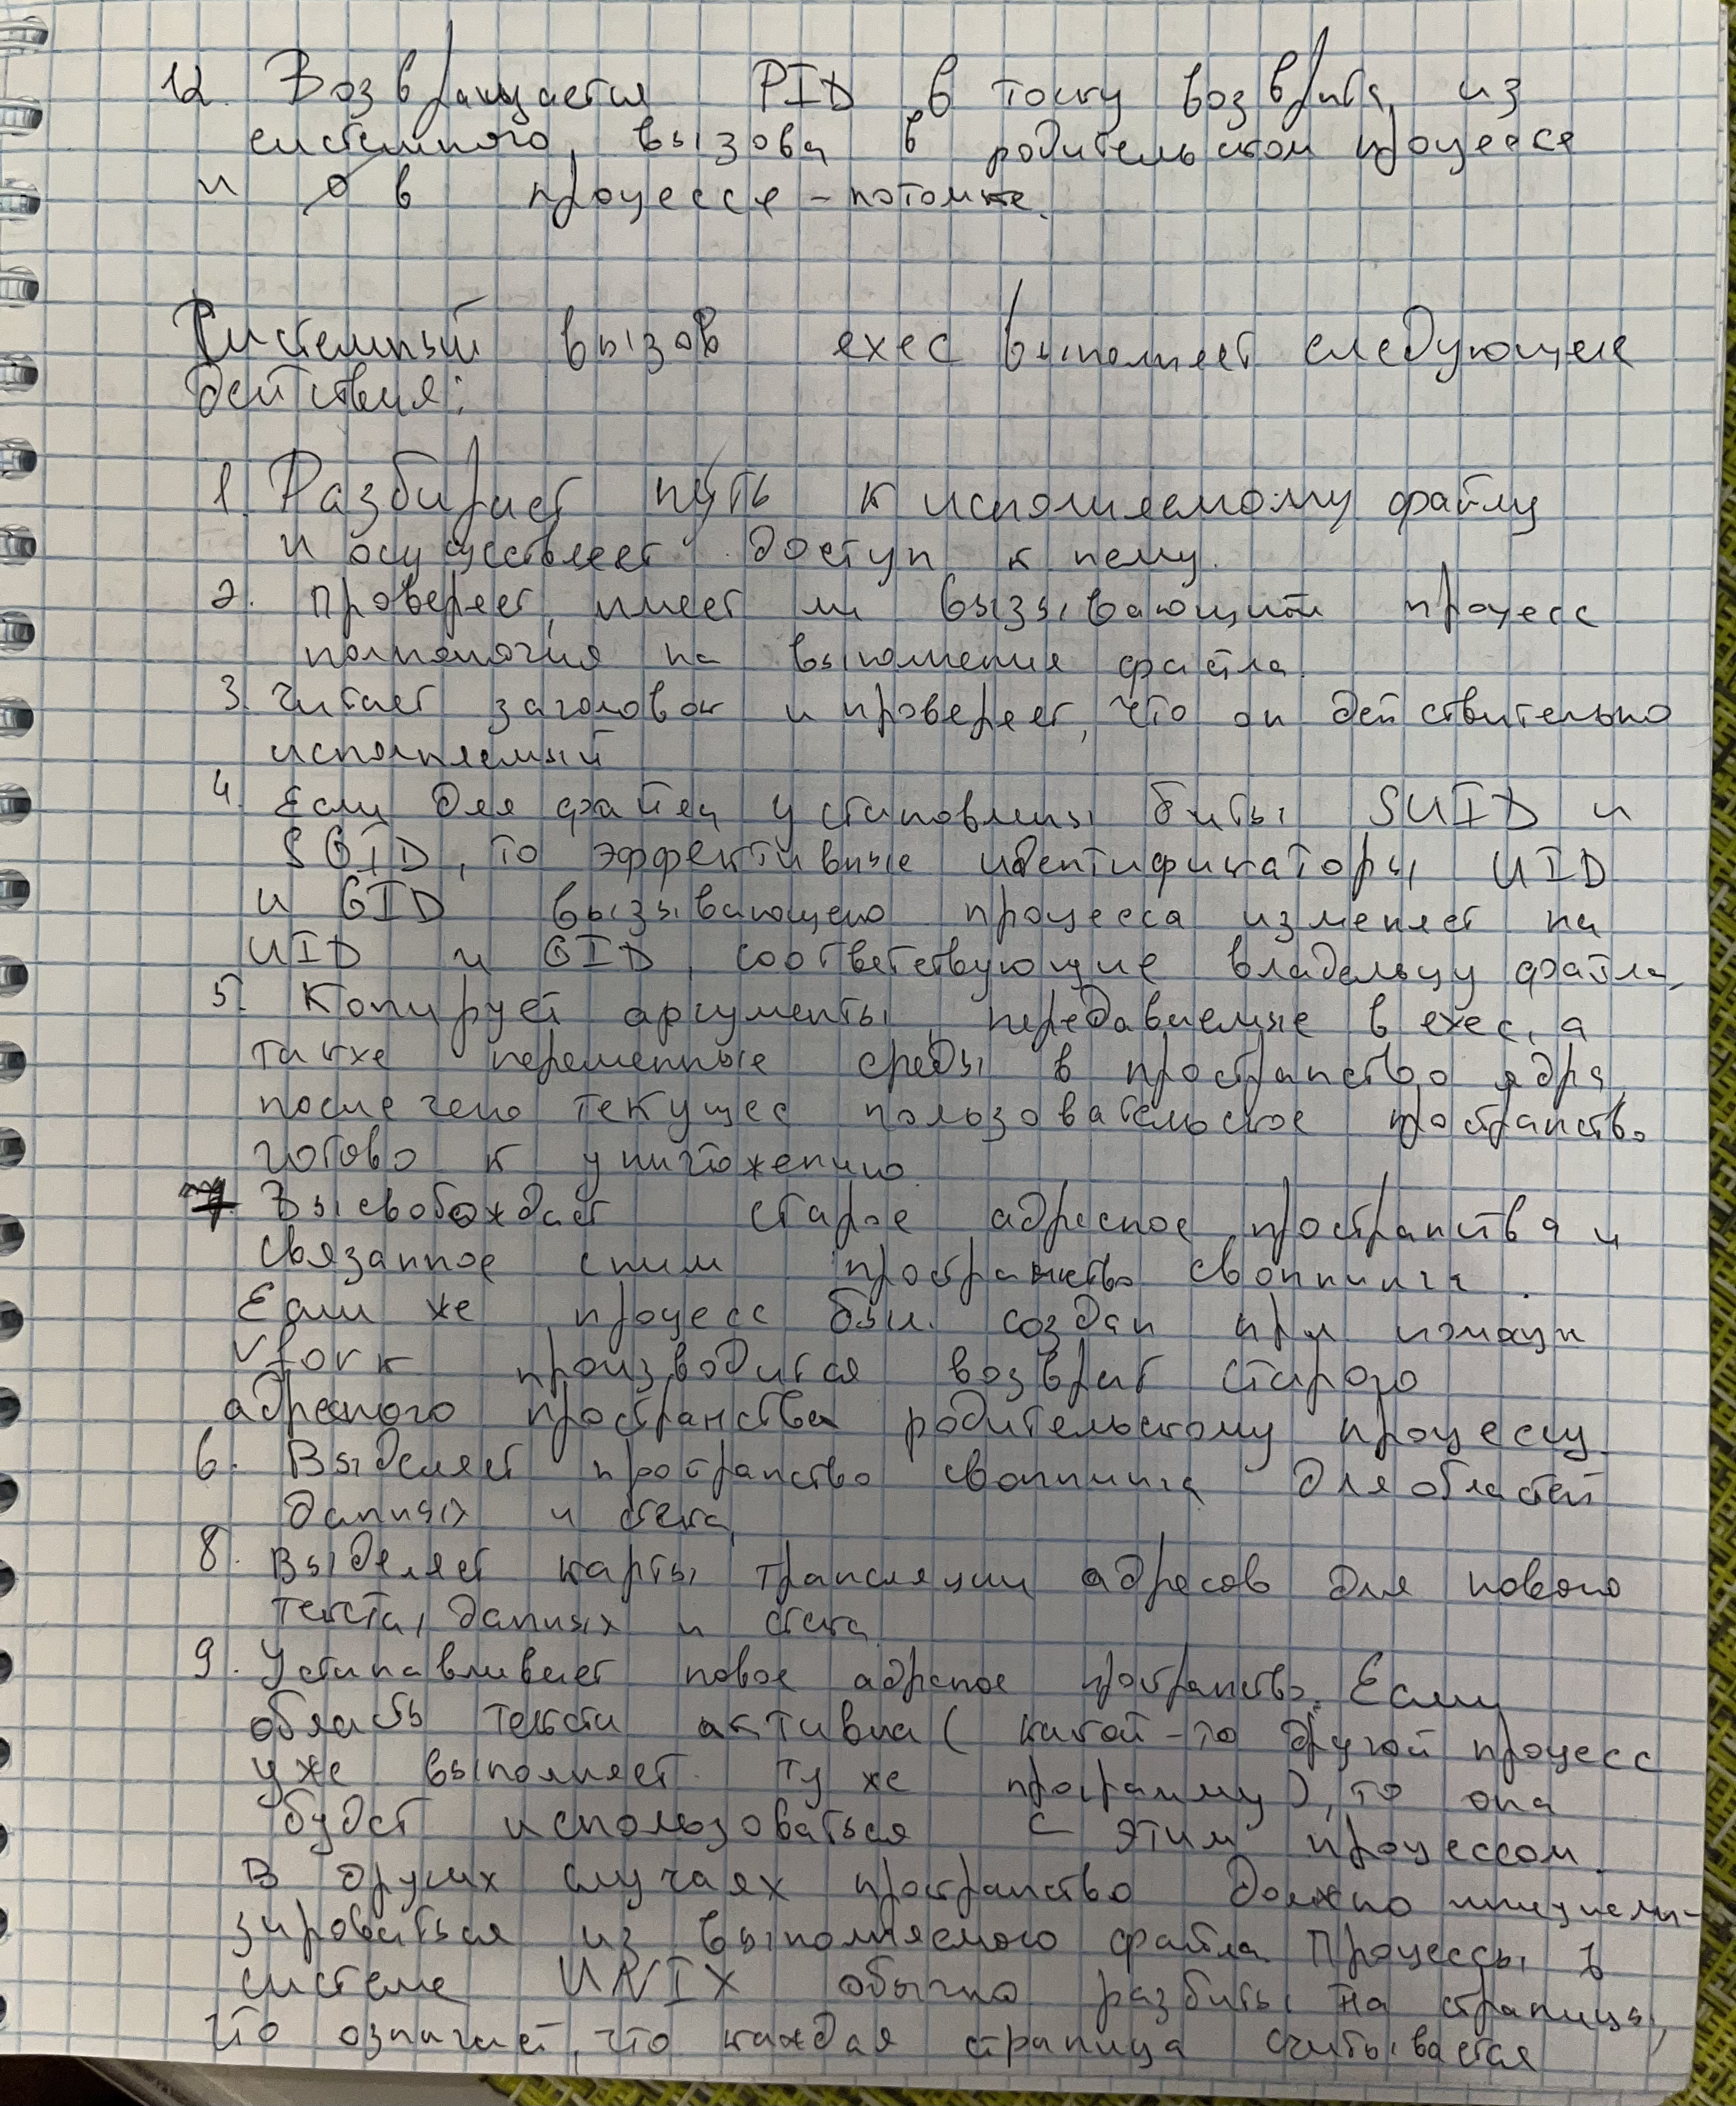 12. Возвращается PID в точку возврата из
системного вызова в родительском процессе
и 0 в процессе-потомке.
Системный вызов exec выполняет следующие
действия:
1. Разбирает путь к исполняемому файлу
и осуществляет доступ к нему.
2. Проверяет, имеет ли вызывающий процесс
полномочия на выполнения файла.
3. Читает заголовок и проверяет, что он действительно
исполняемый
4. Если для файла установлены биты SUID и
SGID, то эффективные идентификаторы UID
и GID вызывающего процесса изменяет на
UID и GID, соответствующие владельцу файла,
5. Копирует аргументы, передаваемые в exec, а
также переменные среды в пространство ядра,
после чего текущее пользовательское пространство
готово к уничтожению
7 Высвобождает старое адресное пространства и
связанное с ним пространство своппинга.
Если же процесс был создан при помощи
vfork производится возврат старого
адресного пространства родительскому процессу.
6. Выделяет пространство своппинга для областей
данных и стека,
8. Выделяет карты трансляции адресов для нового
текста, данных и стека.
9. Устанавливает новое адресное пространство. Если
область текста активна (какой-то другой процесс
уже выполняет ту же программу), то она
будет использоваться с этим процессом.
В других случаях пространство должно инициали-
зироваться из выполняемого файла. Процессы в
системе UNIX обычно разбиты на страницы,
что означает, что каждая страница считывается